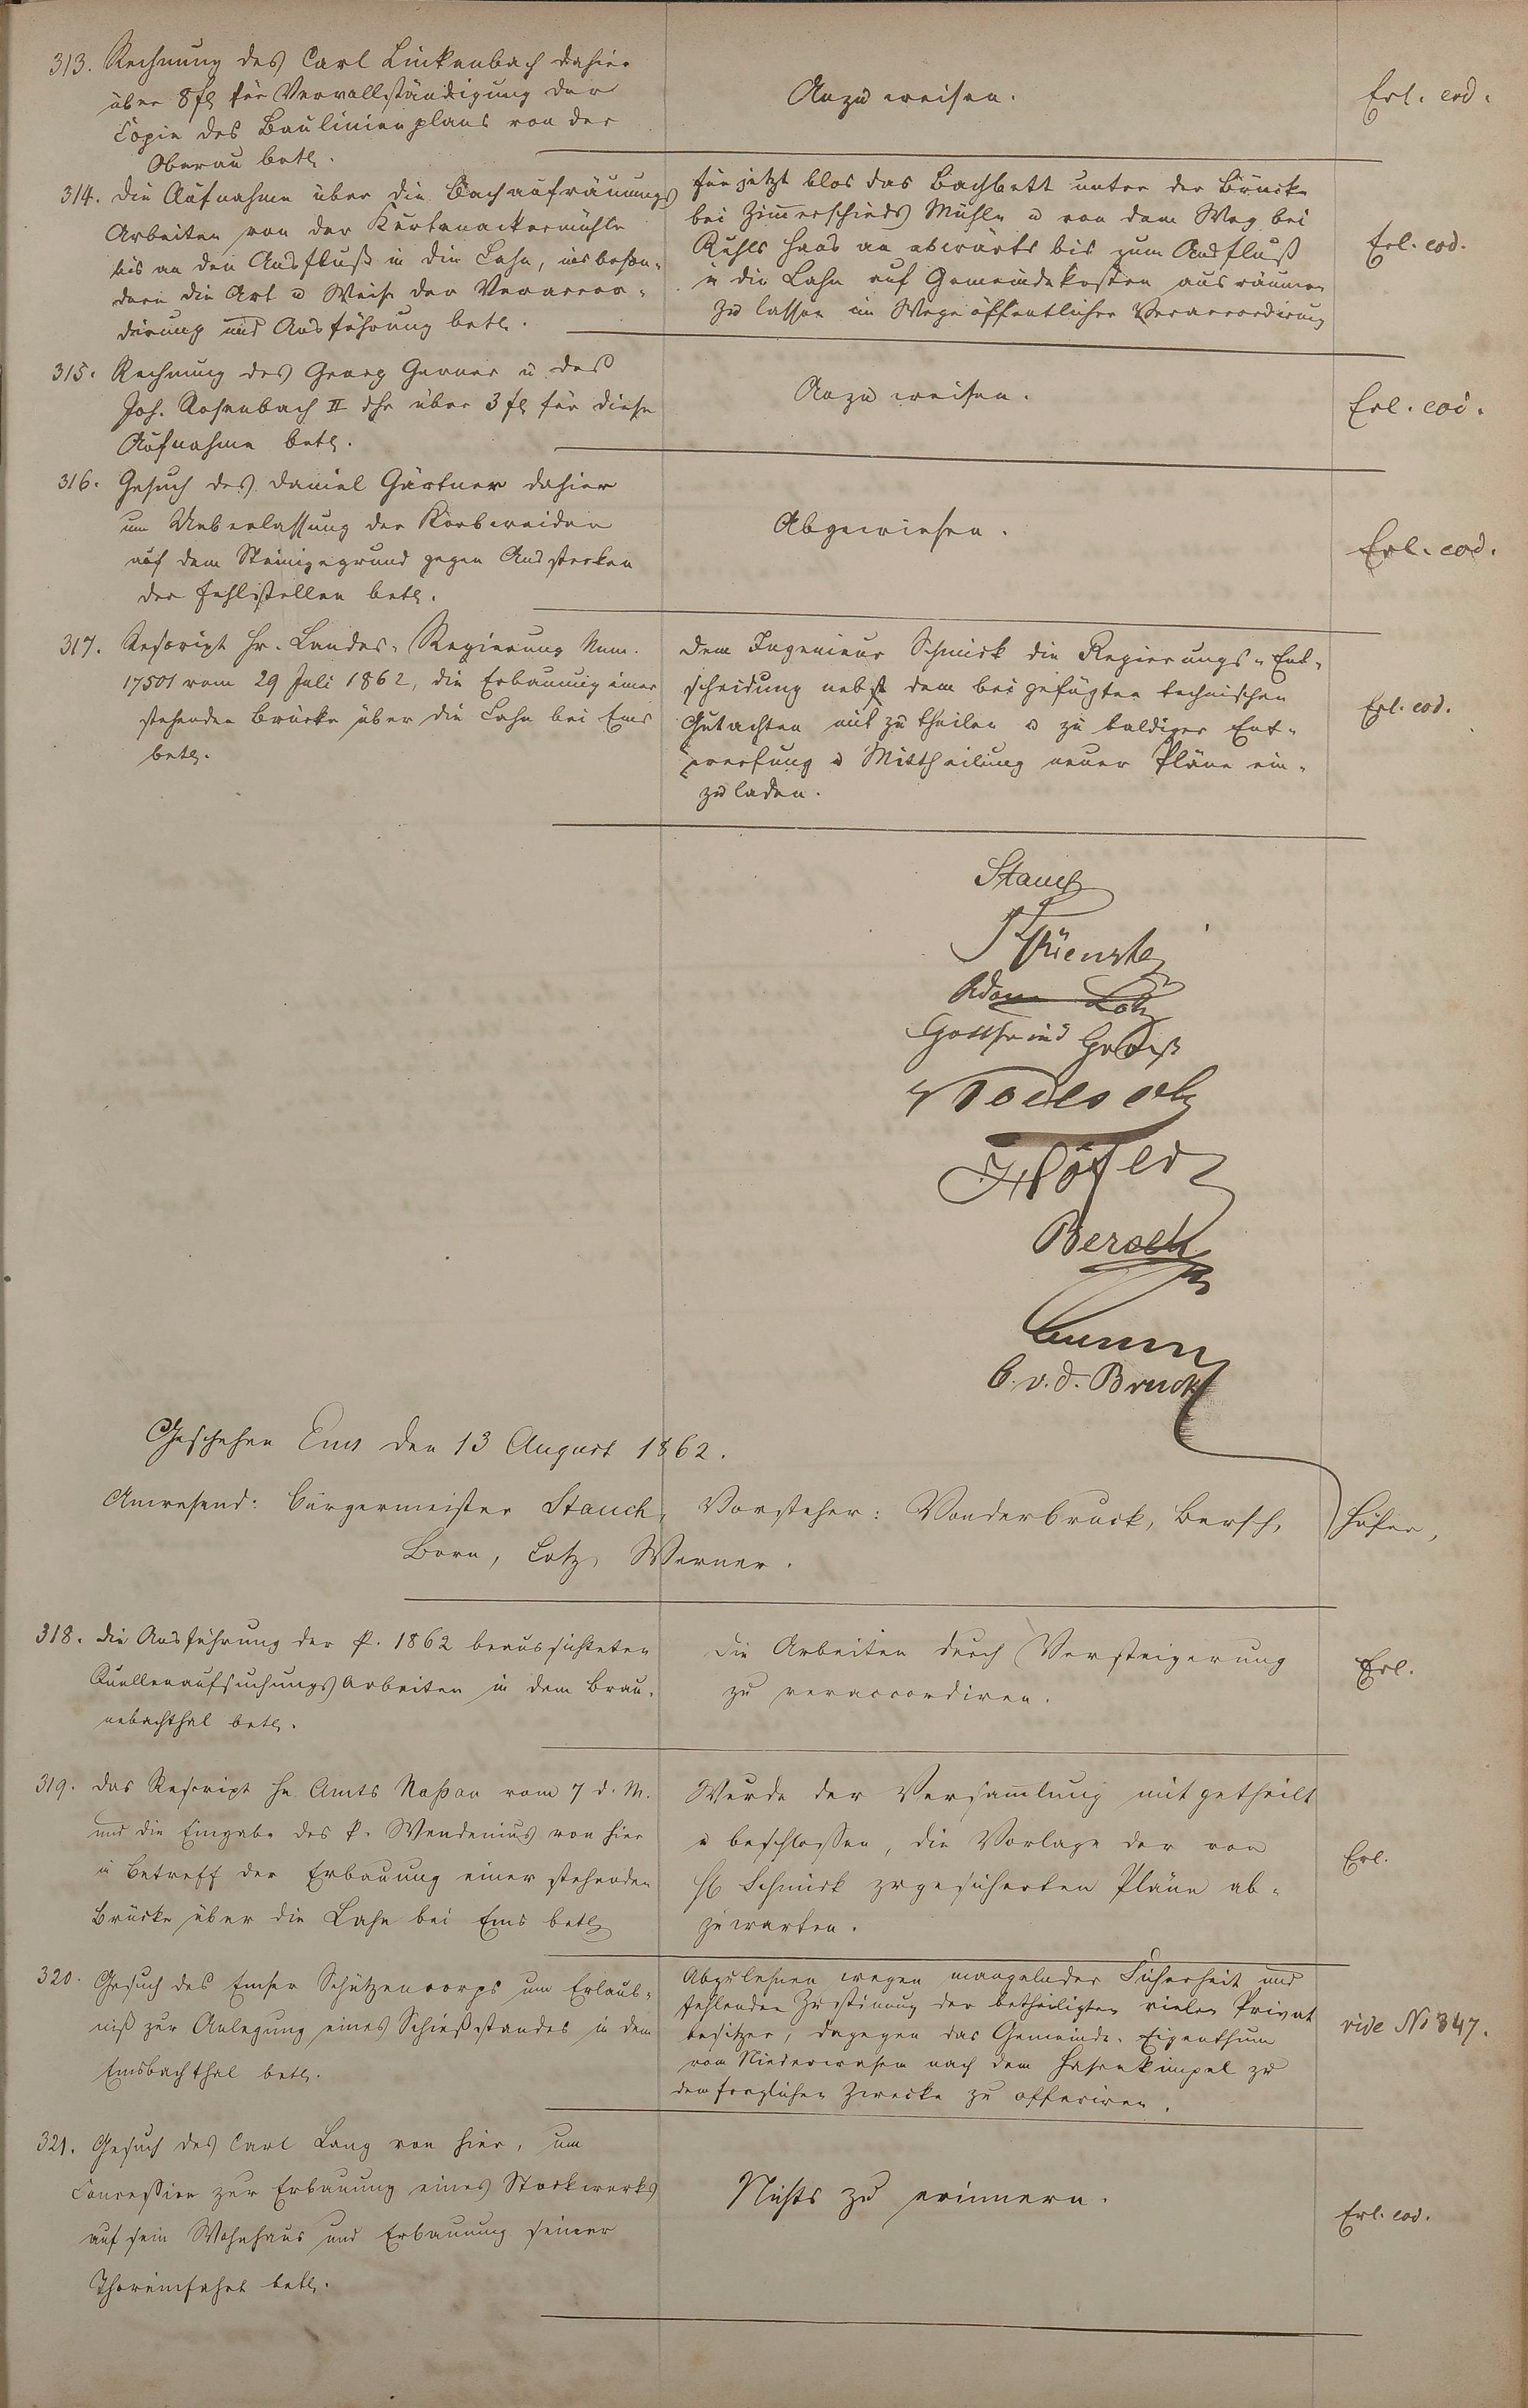 313. Rechnung des Carl Linkenbach dahier
über 8 fl für Vervollständigung der
Copie des Baulinienplans von der
Oberau betr.
Anzuweisen.
Erl. eod.
314. Die Aufnahme über die Bachaufräumungs
Arbeiten von der
bis an den Ausfluß in die Lahn, insbeson-
dere die Art u Weise der Veraccor-
dirung und Ausführung betr.
für jetzt blos das Bachbett unter der Brücke
bei Zimerschieds Mühle u von dem Weg bei
Ruhls Haus an abwärts bis zum Ausfluß
in die Lahn auf Gemeindekosten ausräumen
zu lassen im Wege öffentlicher Veraccordirung
Erl. eod.
315. Rechnung des Georg Gerner u des
Joh. Rosenbach II dhr über 3 fl für diese
Aufnahme betr.
Anzuweisen.
Erl. eod.
316. Gesuch des Daniel Gärtner dahier
um Ueberlassung der Korbweiden
auf dem Steinigegrund gegen Ausstecken
der Fehlstellen betr.
Abgewiesen.
Erl. eod.
317. Rescript Hr. Landes-Regierung Num.
17501 vom 29 Juli 1862, die Erbauung einer
stehenden Brücke über die Lahn bei Ems
betr.
Dem Ingenieur Schmick die Regierungs-Ent-
scheidung nebst dem beigefügten technischen
Gutachten mit zu theilen u zu baldiger Ent-
werfung u Mittheilung neuer Pläne ein-
zuladen.
Erl. eod.
Stauch
Adam Lotz
Gottfried
Höfer
Bersch
C. v. d. Bruck
Geschehen Ems den 13 August 1862.
Anwesend: Bürgermeister Stauch, Vorsteher: Vonderbruck, Bersch, Höfer,
Born, Lotz, Werner.
318. Die Ausführung der p. 1862 beaufsichteten
Quellenaufsuchungs Arbeiten in dem Brau-
nebachthal betr.
Die Arbeiten durch Versteigerung
zu veraccordiren.
Erl.
319. Das Rescript Hr. Amts Naßau vom 7 d. M.
und die Eingabe des p. Wendenius von hier
in Betreff der Erbauung einer stehenden
Brücke über die Lahn bei Ems betr
Wurde der Versamlung mitgetheilt
u beschlossen, die Vorlage der von
H Schmick zugesicherten Pläne ab-
zuwarten.
Erl.
320. Gesuch des Emser Schützencorps um Erlaub-
niß zur Anlegung eines Schießstandes in dem
Emsbachthal betr.
Abzulehnen wegen mangelnder Sicherheit und
fehlenden Zustimung der betheiligten vielen Privat
besitzer, dagegen das Gemeinde-Eigenthum
von Niederwesen nach dem Hasenkimpel zu
dem fraglichen Zwecke zu offeriren.
vide No 347.
321. Gesuch des Carl Lang von hier, um
Concession zur Erbauung eines Stockwerks
auf sein Wohnhaus und Erbauung seiner
Thoreinfahrt betr.
Nichts zu erinnern.
Erl. eod.